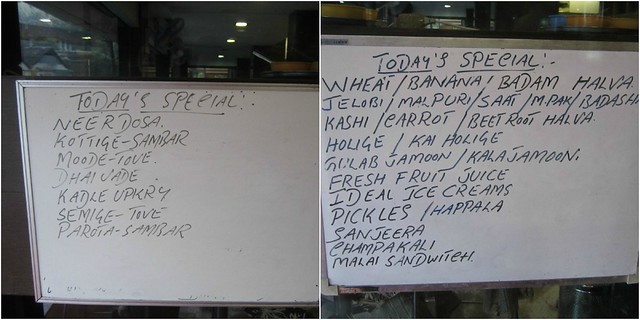 TODAY'S SPECIAL:-
NEERDOSA.
KOTTIGE-SAMBAR
MOODE-TOVE.
DHAI VADE.
KADLE UPKRY
SEMIGE-TOVE
PAROTA-SAMBAR
TODAY'S SPECIAL:-
WHEAT/BANANA/BADAM HALVA.
JELOBI/MALPURI/SAAT/M.PAK/BADASHA
KASHI/CARROT/BEETROOT HALVA.
HOLIGE/KAI HOLIGE
GULAB JAMOON/KALAJAMOON.
FRESH FRUIT JUICE
IDEAL ICE CREAMS
PICKLES/HAPPALA
SANJEERA
CHAMPAKALI
MALAI SANDWITCH.